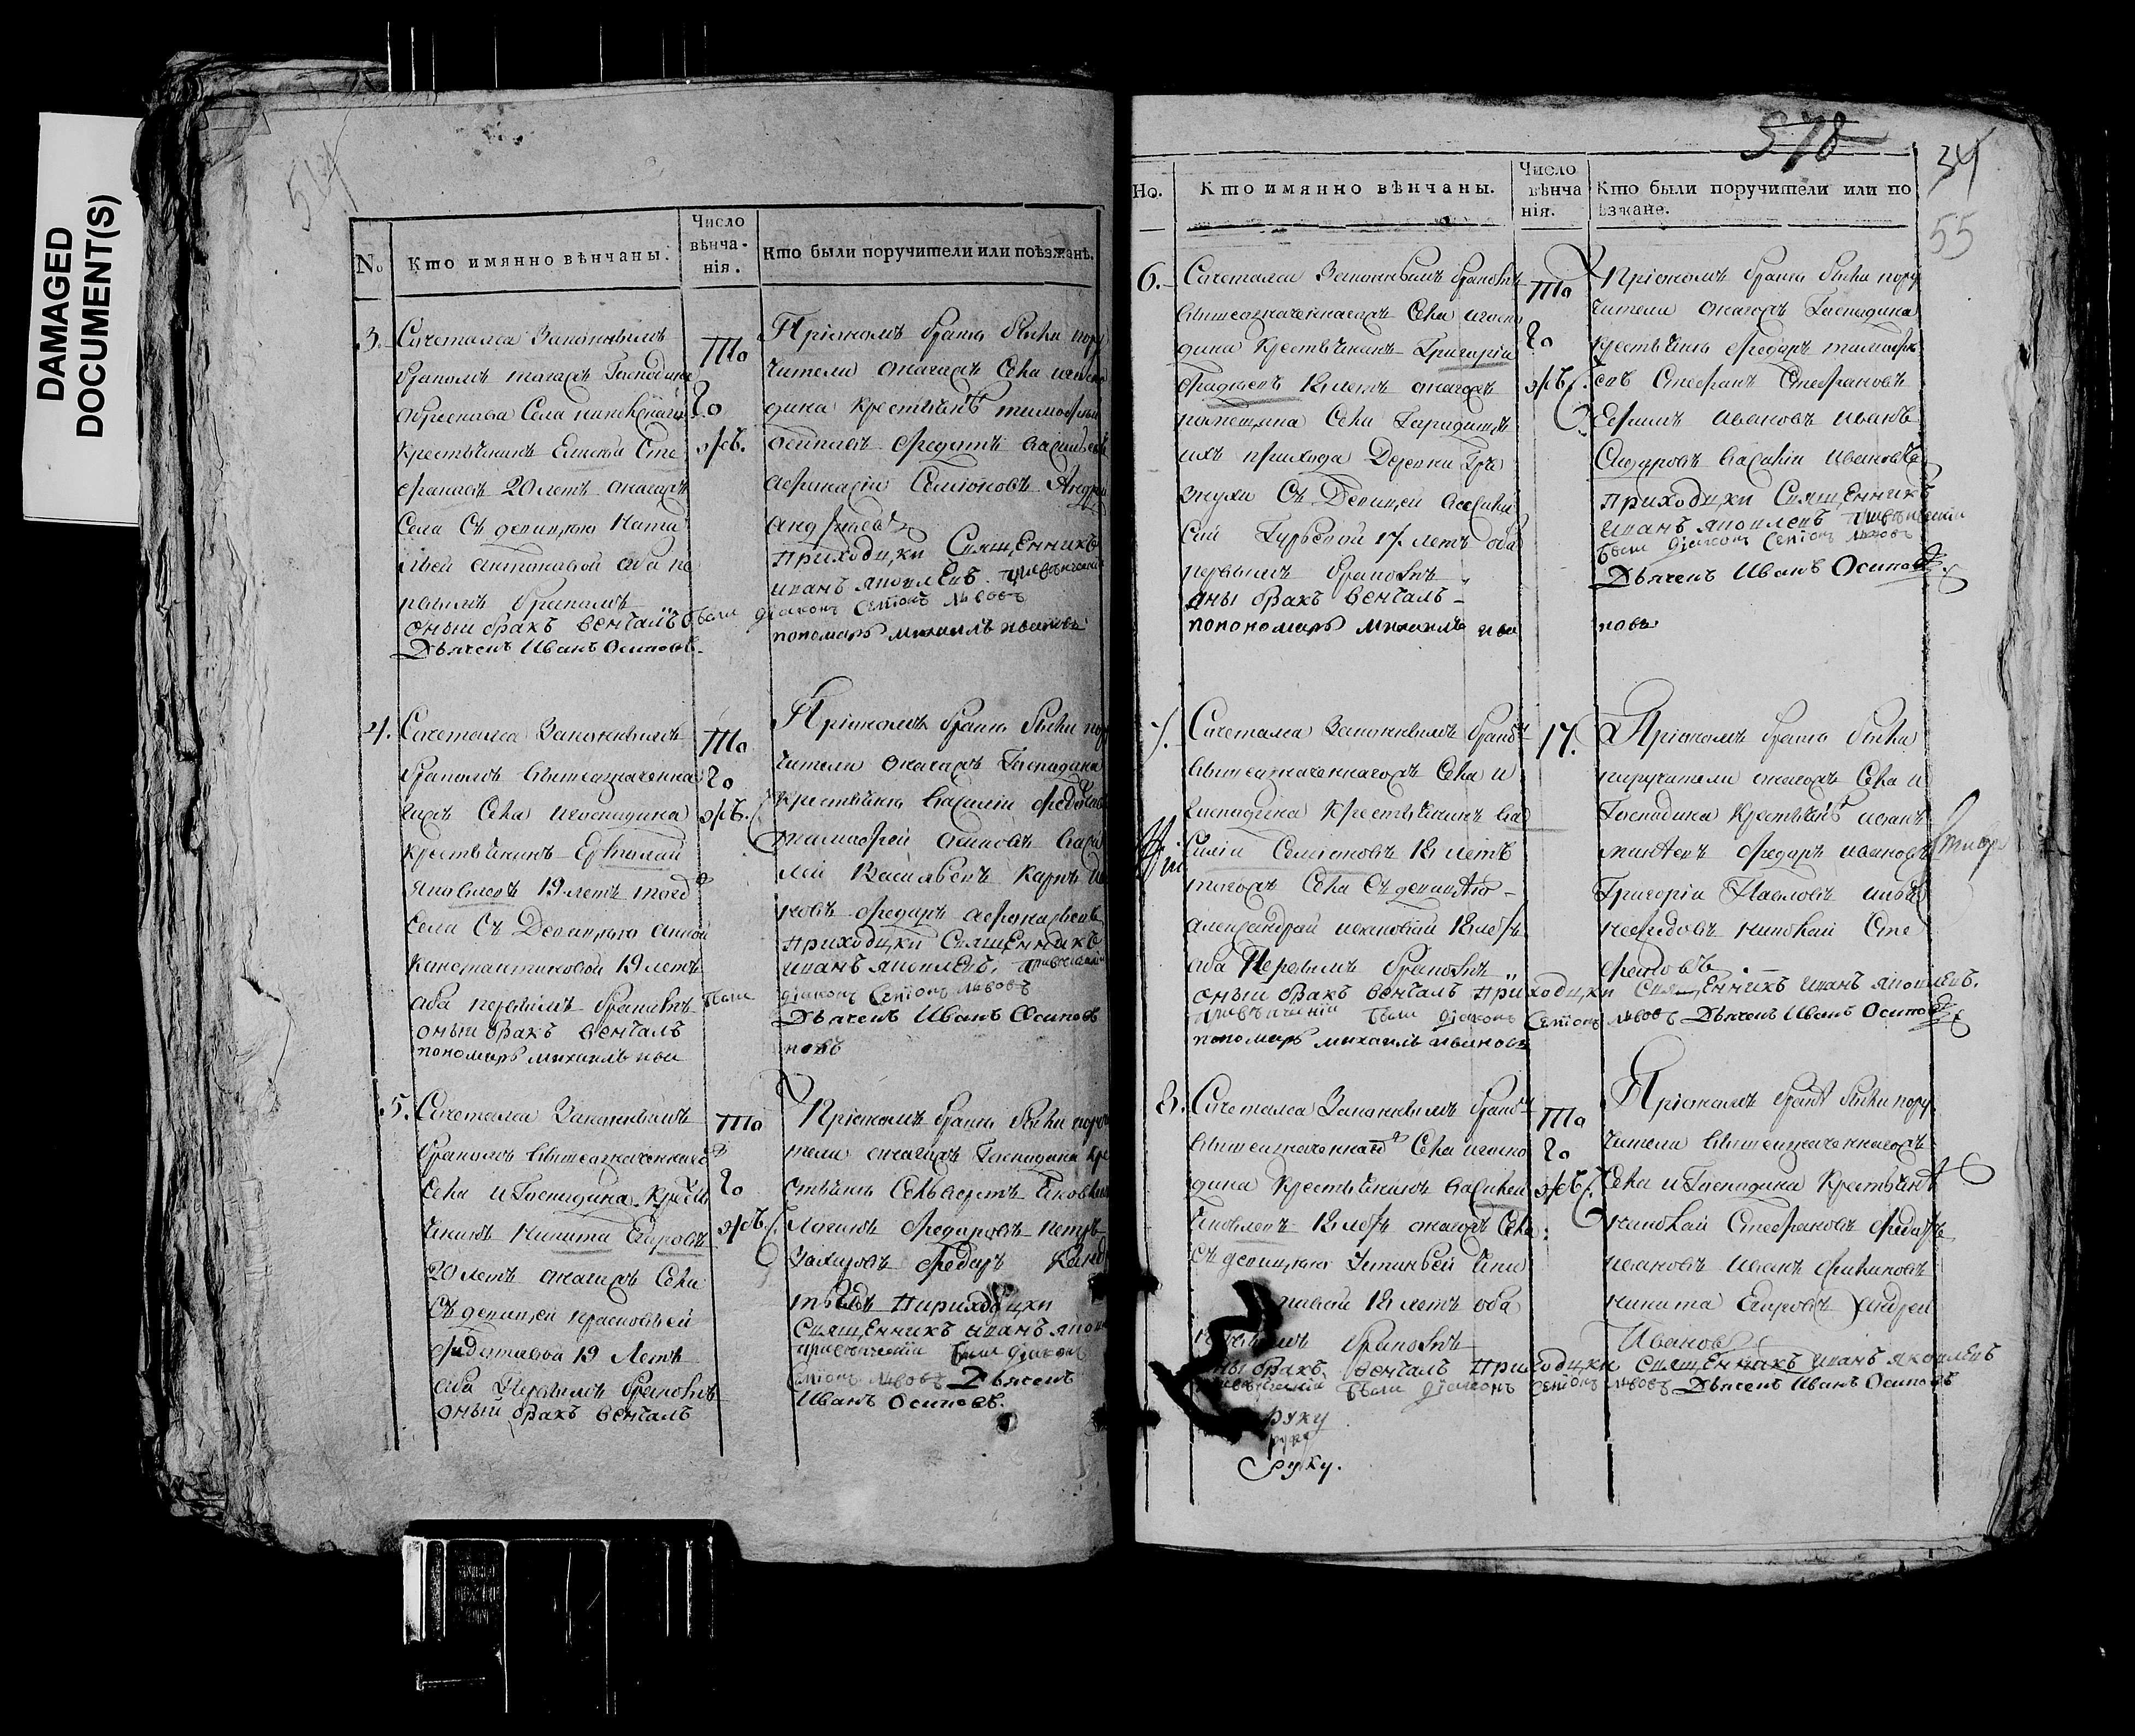 DAMAGED
DOCUMENT(S)
514
No
Кто имянно вѣнчаны.
Число
вѣнча-
нія.
Кто были поручители или поѣзжанѣ.
3.
Сочетался Законнымъ
бракомъ тогожъ Господина
Села
крестьянинъ Елисѣй Сте
фановъ 20 летъ оногожъ
Села Съ девицею Ната
льей Антоновой оба пе
рвымъ бракомъ
оный бракъ венчалъ
Дьячекъ Иванъ Осиповъ.
Того
жъ.
При ономъ браке были пору
чители оногожъ Села игоспо
дина крестьяне тимофей
осиповъ Федотъ васильевъ
афонасій Семіоновъ Андрей
Андреевъ
приходцки Священникъ
иванъ яковлевъ. привенчаніи
были діаконъ Семіонъ Львовъ
пономарь михаилъ ивановъ
4.
Сочетался Законнымъ
бракомъ вышеозначенна
гожъ Села игосподина
крестьянинъ Ермолай
Яковлевъ 19 летъ того
села Съ Девицею Анной
Константиновой 19 летъ
оба первымъ бракомъ
оный бракъ венчалъ
пономарь михаилъ ива
Того
жъ.
При ономъ браке были пору
чители оногожъ Господина
крестьяне Василій Федотовъ
тимофей осиповъ Васи
лей Васильевъ Карпъ Ива
новъ Федоръ афонасьевъ
приходцки Священникъ
иванъ яковлевъ. привенчаніи
были діаконъ Семіонъ Львовъ
Дьячекъ Иванъ Осиповъ
новъ
5.
Сочетался Законнымъ
бракомъ вышеозначеннаго
Села и Господина Кресть
янинъ Никита Егоровъ
20 летъ оногожъ Села
Съ девицей прасковьей
Федотовой 19 Летъ
оба Первымъ бракомъ
оный бракъ венчалъ
Того
жъ.
При ономъ браке были поручи
тели оногожъ Господина кре
стьяне Селиверстъ Яковлевъ
Логинъ Федоровъ петръ
Захаровъ Федоръ Конд
ратьевъ Приходцки
Священникъ иванъ яков
привенчаніи были діаконъ
Семіонъ Львовъ Дьячекъ
Иванъ Осиповъ.
578
34
55
Но.
Кто имянно вѣнчаны.
Число
вѣнча
нія.
Кто были поручители или по
ѣзжане.
6.
Сочетался Законнымъ бракомъ
вышеозначеннагожъ Села игоспо
дина Крестьянинъ Григорій
Фадеевъ 18 летъ оногожъ
помещика Села Городищъ
ихъ прихода Деревни Гре
знухи Съ Девицей
Гурьевой 17. летъ оба
первымъ бракомъ
оны бракъ венчалъ
пономарь михаилъ ива
Того
жъ.
При ономъ браке были пору
чители оногожъ Господина
крестьяне Федоръ тимофе
евъ Стефанъ Стефановъ
Ефимъ Ивановъ иванъ
Сидоровъ Василій Ивановъ
приходцки Священникъ
иванъ яковлевъ привенчаніи
были діаконъ Семіонъ Львовъ
Дьячекъ Иванъ Осиповъ.
новъ
7.
Сочетался Законнымъ бракомъ
вышеозначеннагожъ Села и
Господина Крестьянинъ Ва
силій Семіоновъ 18 летъ
тогожъ Села Съ девицею
Александрой ивановой 18 летъ
оба Первымъ бракомъ
оный бракъ венчалъ приходцки Священникъ иванъ яковлевъ.
привенчаніи были діаконъ Семіонъ Львовъ Дьячекъ Иванъ Осиповъ
пономарь михаилъ ивановъ
17.
При ономъ браке были
поручители оногожъ Села и
Господина Крестьяне иванъ
Федоръ ивановъ
Григорій Павловъ иванъ
Николай Сте
фановъ
8.
Сочетался Законнымъ бракомъ
вышеозначеннаго Села игоспо
дина Крестьянинъ Василей
Яковлевъ 18 летъ оногожъ Села
Съ девицею Устиньей
18 летъ оба
первымъ бракомъ
оны бракъ венчалъ приходцки Священникъ иванъ яковлевъ
привенчаніи были діаконъ Семіонъ Львовъ Дьячекъ Иванъ Осиповъ
Того
жъ.
При ономъ браке были пору
чители вышеозначеннагожъ
Села и Господина Крестьяне
николай Стефановъ Федоръ
ивановъ иванъ
никита Егоровъ Андрей
Ивановъ
руку
руку
руку.